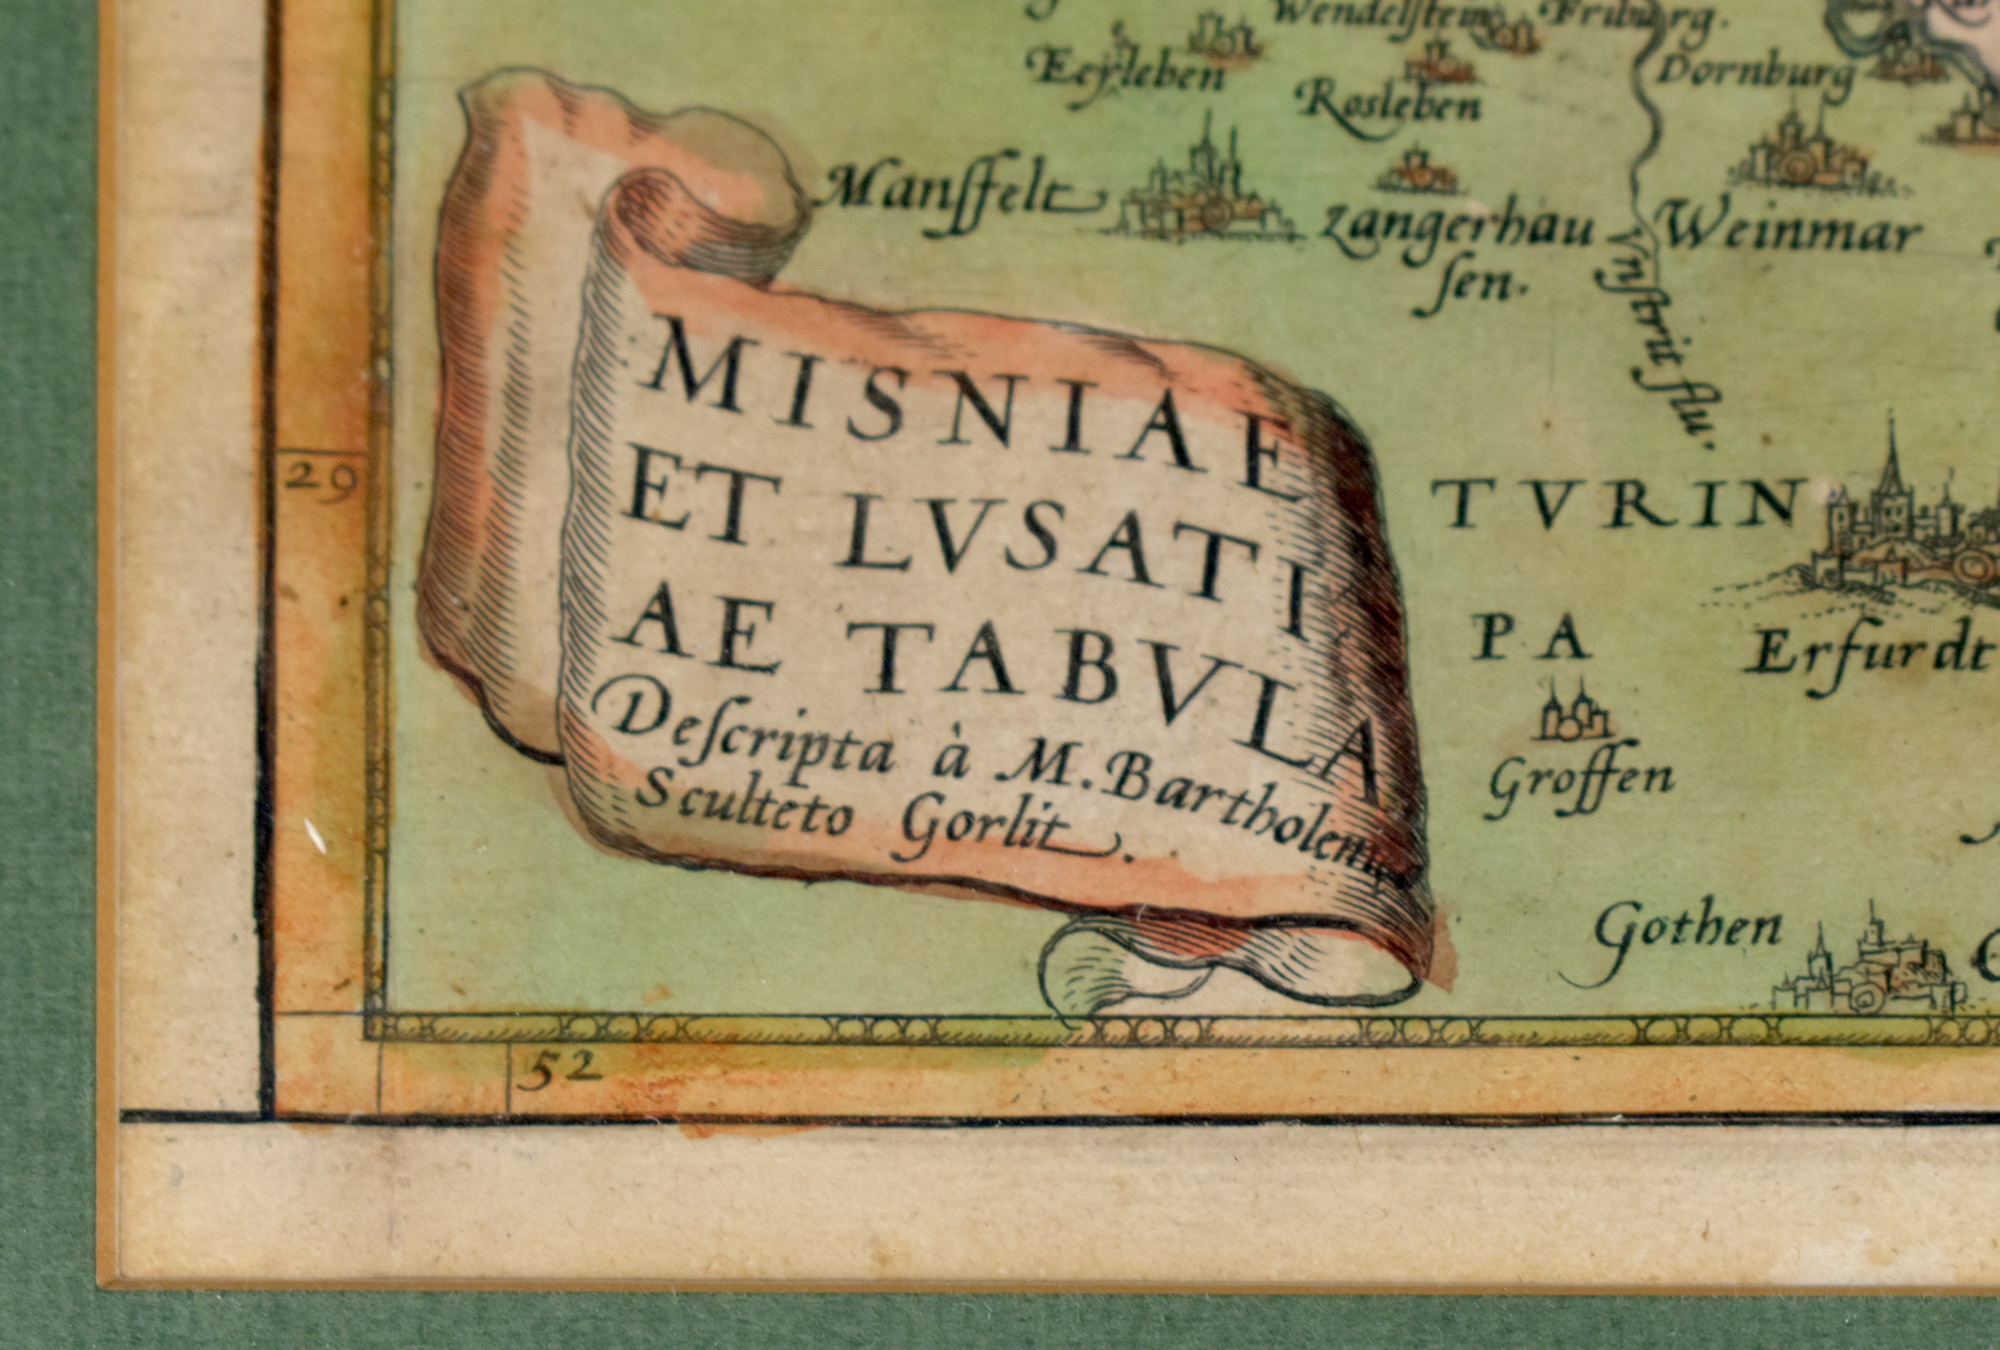 Wendelstein
Friburg.
Eeyleben
Rosleben
Dornburg
Mansfelt
Zangerhau
sen.
Weinmar
Vnstrit flu.
MISNIAE
ET LVSATI
AE TABVLA
Descripta à M. Bartholemeo
Sculteto Gorlit.
TVRIN
PA
Erfurdt
Groffen
Gothen
29
52